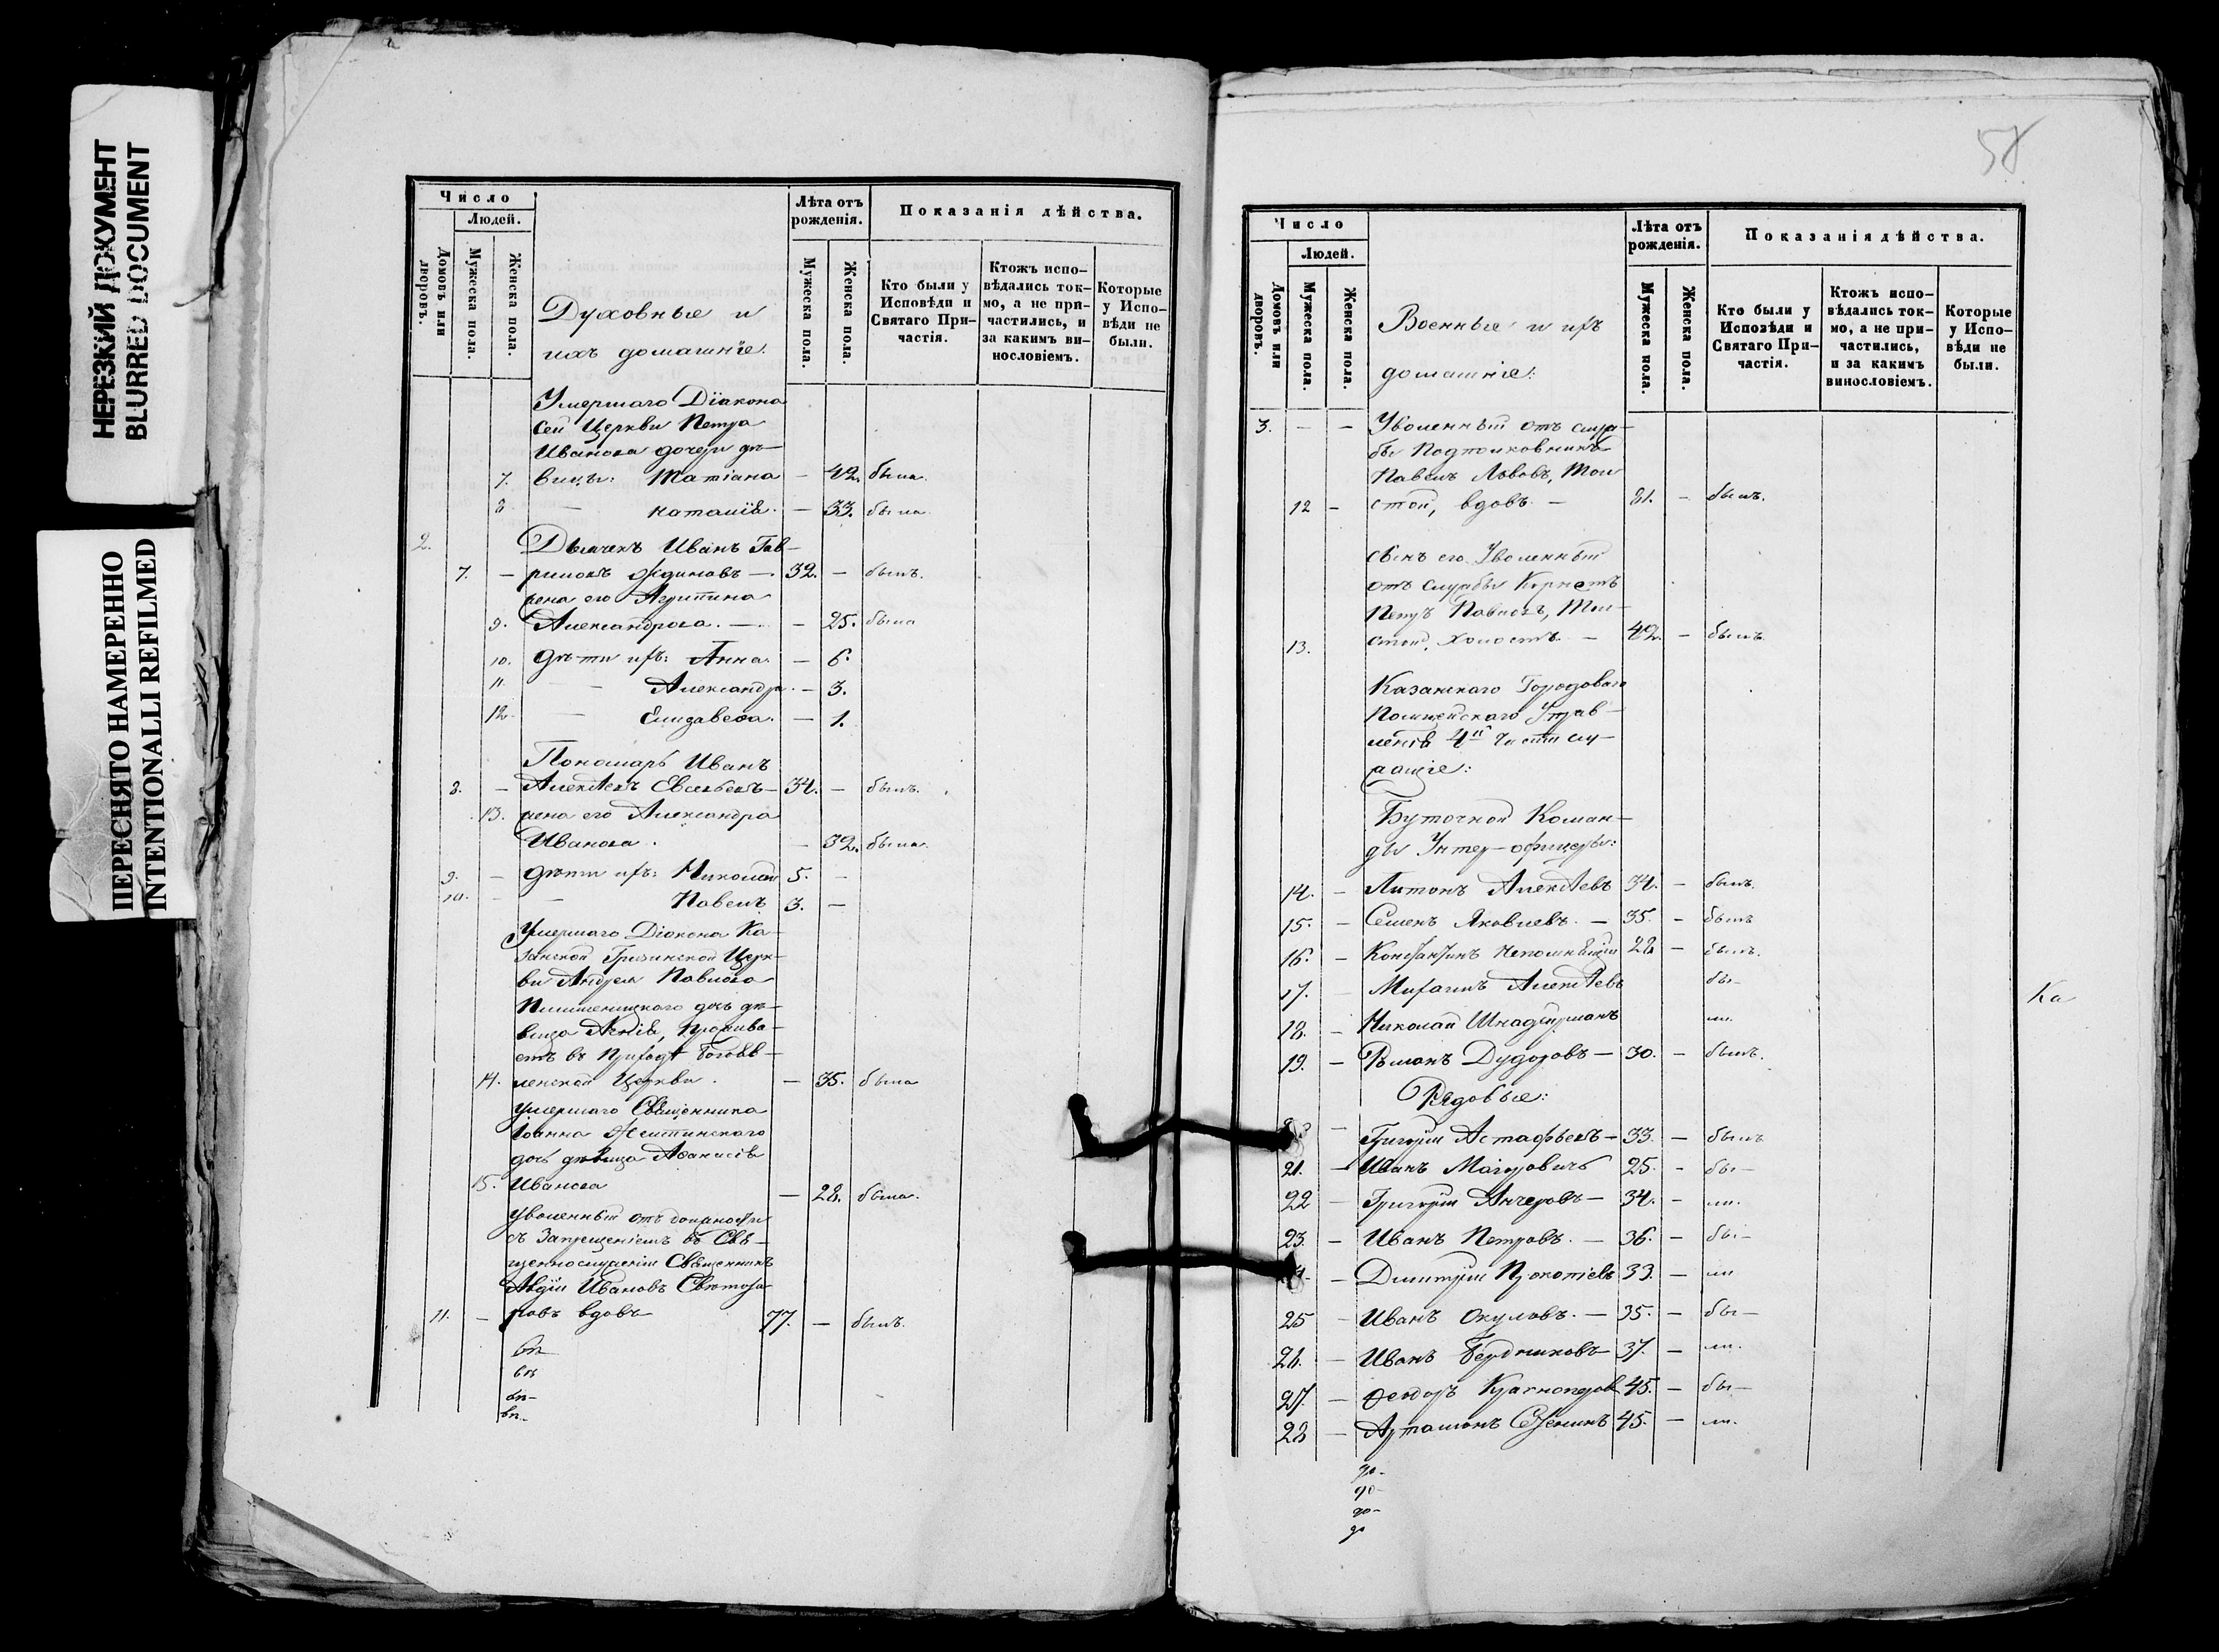 НЕРЕЗКИЙ ДОКУМЕНТ
BLURRED DOCUMENT
ПЕРЕСНЯТО НАМЕРЕННО
INTENTIONALLI REFILMED
Число
Людей.
Домовъ или дворовъ.
Мужеска пола.
Женска пола.
Духовные и
ихъ домашніе.
Лѣта отъ
рожденія.
Мужеска пола.
Женска пола.
Показанія дѣйства.
Кто были у
Исповѣди и
Святаго При-
частія.
Ктожъ испо-
вѣдались ток-
мо, а не при-
частились, и
за какимъ ви-
нословіемъ.
Которые
у Испо-
вѣди не
были.
Умершаго Діакона
сей Церкви Петра
Иванова дочери дѣ-
7. вицы: Татіана — 42. была.
8 — Наталія. — 33. была.
2. Дьячекъ Иванъ Гав-
7. — риловъ — 32. — былъ.
жена его Агрипина
9. Александрова. — — 25. была
10. дѣти ихъ: Анна. — 6.
11. — Александра. — 3.
12. — Елизавета. — 1.
Пономарь Иванъ
8. — Алексѣевъ Евсевьевъ — 34. — былъ.
13. жена его Александра
Иванова. — 32. была.
9. — дѣти ихъ: Николай 5. —
10. — — Павелъ 3. —
Умершаго Діакона Ка-
занской Грузинской Церк-
ви Андрея Павлова
дочь дѣ-
вица прожива-
етъ въ Приходѣ Богояв-
14. ленской Церкви. — 35. была
умершаго Священника
Іоанна
дочь дѣвица Аѳанасія
15. Иванова — 28. была.
уволенный отъ должности
съ Запрещеніемъ въ Свя-
щеннослуженіи Священникъ
Авдій Ивановъ
11. — вдовъ 77. — былъ.
58
Число
Людей.
Домовъ или дворовъ.
Мужеска пола.
Женска пола.
Военные и ихъ
домашніе:
Лѣта отъ
рожденія.
Мужеска пола.
Женска пола.
Показанія дѣйства.
Кто были у
Исповѣди и
Святаго При-
частія.
Ктожъ испо-
вѣдались ток-
мо, а не при-
частились,
и за какимъ
винословіемъ.
Которые
у Испо-
вѣди не
были.
3. — — Уволенный отъ служ-
бы Подполковникъ
Павелъ Львовъ, Тол-
12 — стой, вдовъ. — 81. — былъ.
сынъ его Уволенный
отъ службы Корнетъ
Петръ Павловъ, Тол-
13. стой, холостъ. — 42. — былъ.
Казанскаго Городоваго
Полицейскаго Управ-
ленія 4й части слу-
жащіе:
Буточной Коман-
ды Унтер-офицеры:
14. — Антонъ Алексѣевъ 34. — былъ.
15. — Семенъ Яковлевъ. — 35. — былъ
16. — Константинъ 28 — былъ.
17. — Михаилъ Алексѣевъ бы-
18. — Николай лъ.
19. — Романъ Дудоровъ — 30. — былъ.
Рядовые:
— Григорій Астафьевъ — 33. — былъ
21. — Иванъ 25. — бы—
22 — Григорій — 34. — лъ.
23. — Иванъ Петровъ. — 36. — бы—
— Дмитрій Прокопіевъ 33. — лъ
25 — Иванъ Окуловъ. — 35. — бы—
26. — Иванъ Бердниковъ 37. — лъ.
27. — Ѳедоръ 45. — бы—
28 — Артамонъ 45. — лъ.
Ка